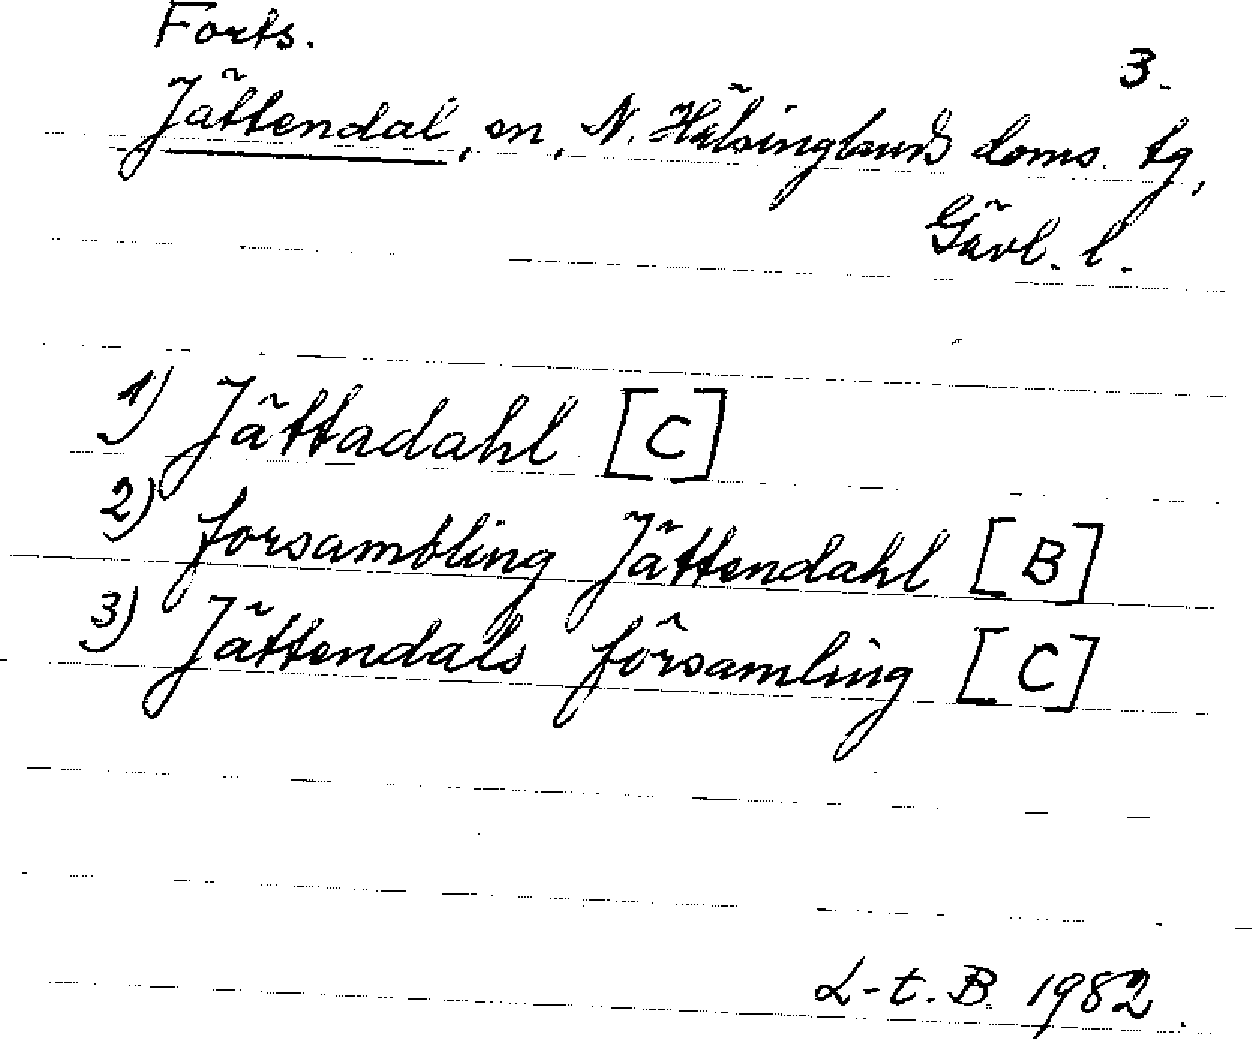 Forts.
3.
Jättendal, sn, N. Hälsinglands doms. tg,
Gävl. l.
1) Jättadahl [C]
2) forsambling Jättendahl [B]
3) Jättendals församling [C]
L-t. B. 1982.